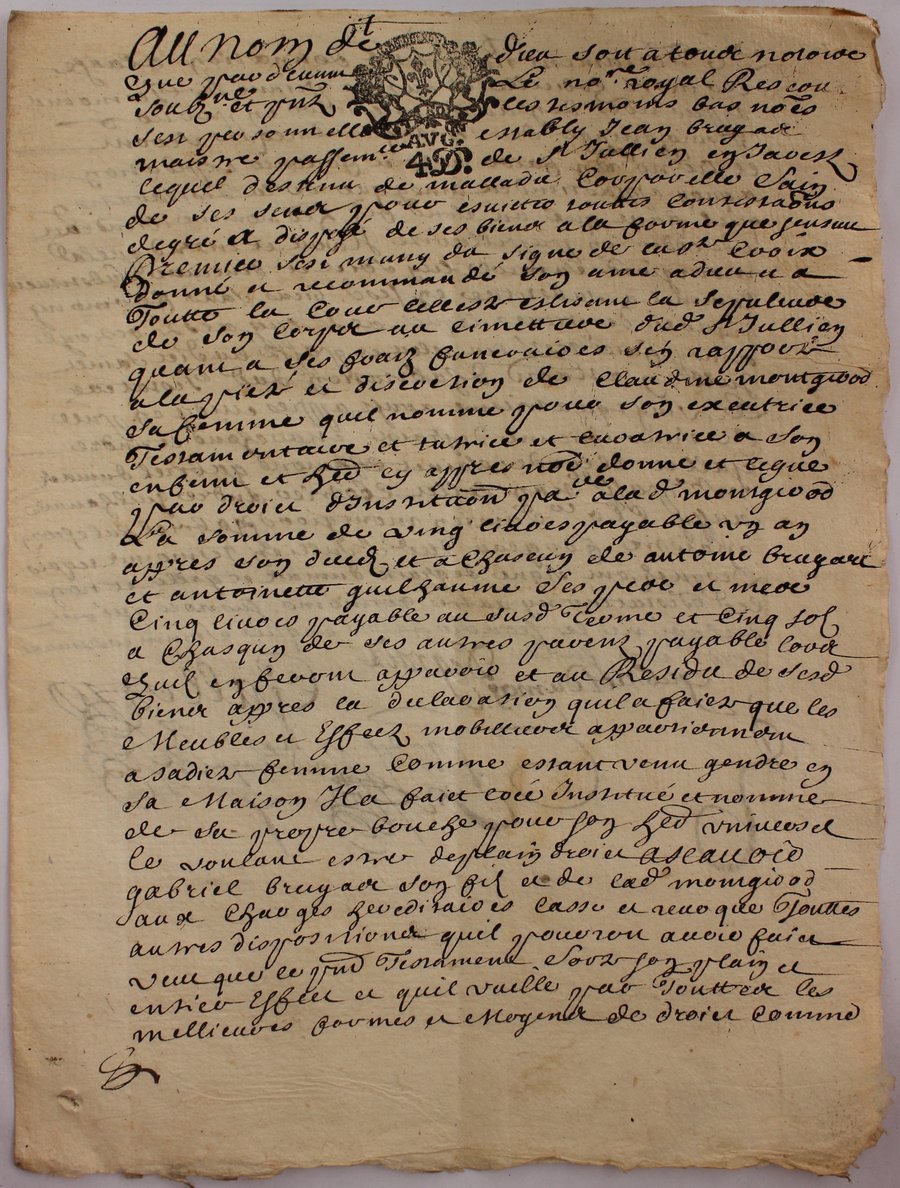 Au nom de dieu soit a tous notoire
que par devant Le no.re royal Res
soubz.ne et p.nt les tesmoins bas no.es
sest personnelle establi Jean brugar
AVG.
4D.
maistre passem.r de S.t Jullien en Jarest
lequel destenu de malladie Corporelle Sain
de ses sens pour esvitter touttes Contestations
degré a disposé de ses biens a la forme que sensuit
Premier sest muny du signe de la S.te Croix
donné et recommandé Son ame a dieu et a
Toutte la Cour Celleste eslisant la sepulture
de son Corps au Cimettiere dud S.t Jullien
quant a ses fraiz funeraires sen rapporte
a la pieté et discretion de Claudine montgirod
sa femme quil nomme pour son executrice
Testamentaire et tutrice et Curatrice a Son
enfant et hed en appres nód donne et legue
par droit dInstitution a lad montgirod
La Somme de vingt livres payable un an
appres son deceds et a Chascun de antoine brugart
et antoinette guilhaume Ses pere et mere
Cinq livres payable au susd Terme et Cinq sol
a Chasqun de ses autres parens payable lors
quil en feront apparoir et au Residu de sesd
biens appres la declaration quil a faict que les
Meubles et Effect mobilliers appartiennent
a sadicte femme Comme estant venu gendre en
sa Maison Il a faict créé Institué et nommé
de sa propre bouche pour son hed universel
le voulant estre de plain droict ascavoir
gabriel brugar son fil et de lad montgirod
aux Charges hereditaires Casse et revoque Touttes
autres dispositions quil pouroit avoir faict
veut que ce pnt Testament Sorte son plain et
entier Effect et quil vaille par Touttes les
mellieures formes et Moyens de droict Comme